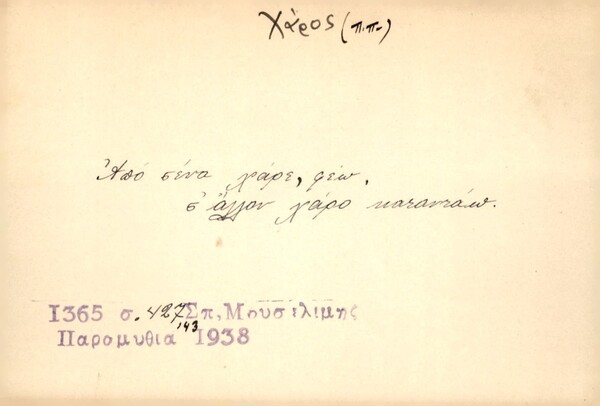 Χάρος (π.π.)
Ἀπό σένα χάρε, φεύω,
σ' ἄλλον χάρο καταντάω.
1365 σ. 427 Σπ, Μουσελίμης
143
Παραμυθια 1938